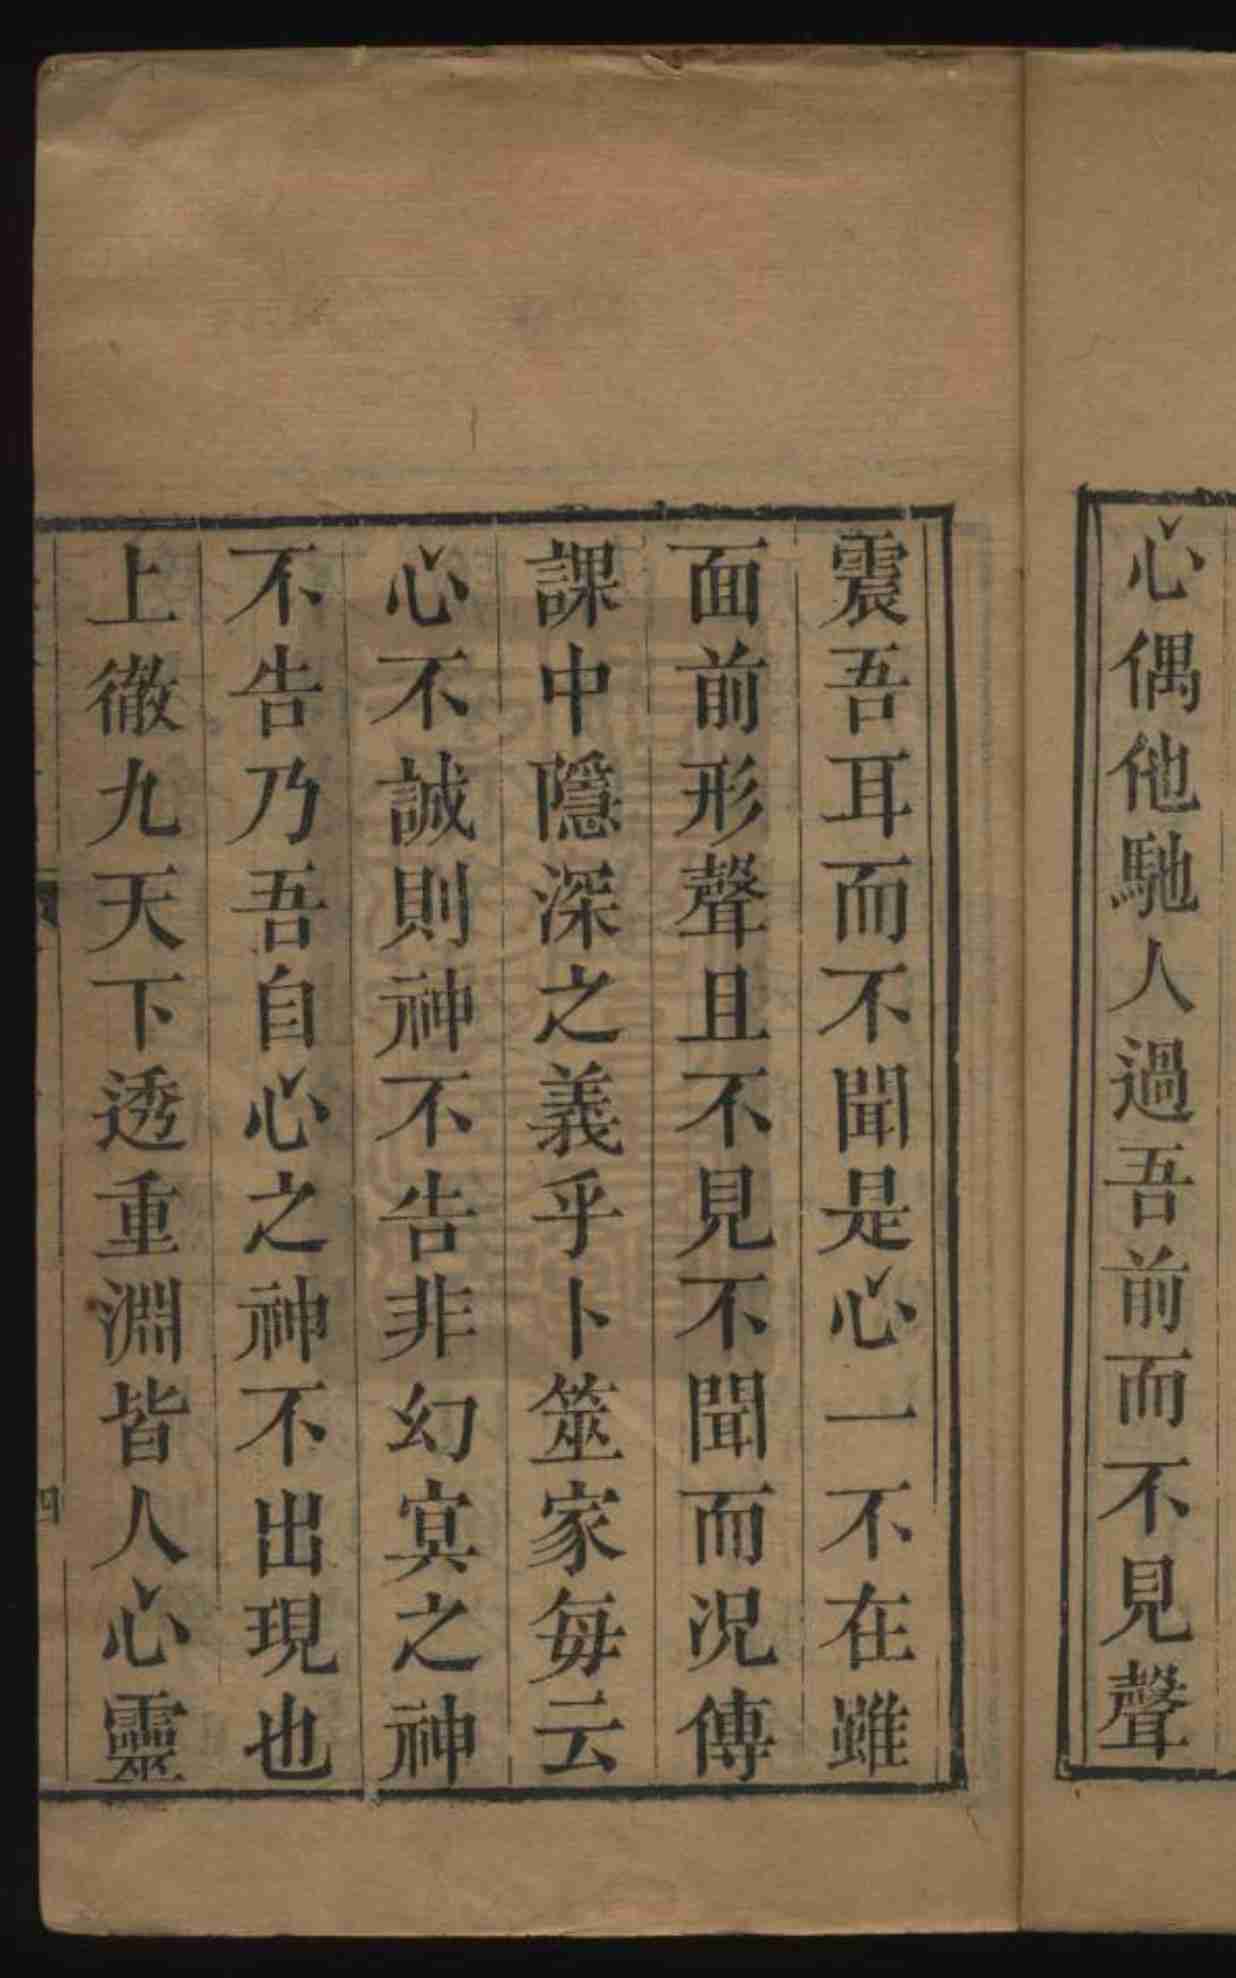 心偶他馳人過吾前而不見聲
震吾耳而不聞是心一不在雖
面前形聲且不見不聞而况傳
課中隱深之義乎卜筮家每云
心不誠則神不告非幻寞之神
不告乃吾自心之神不出現也
上徹九天下透重淵皆人心靈
四